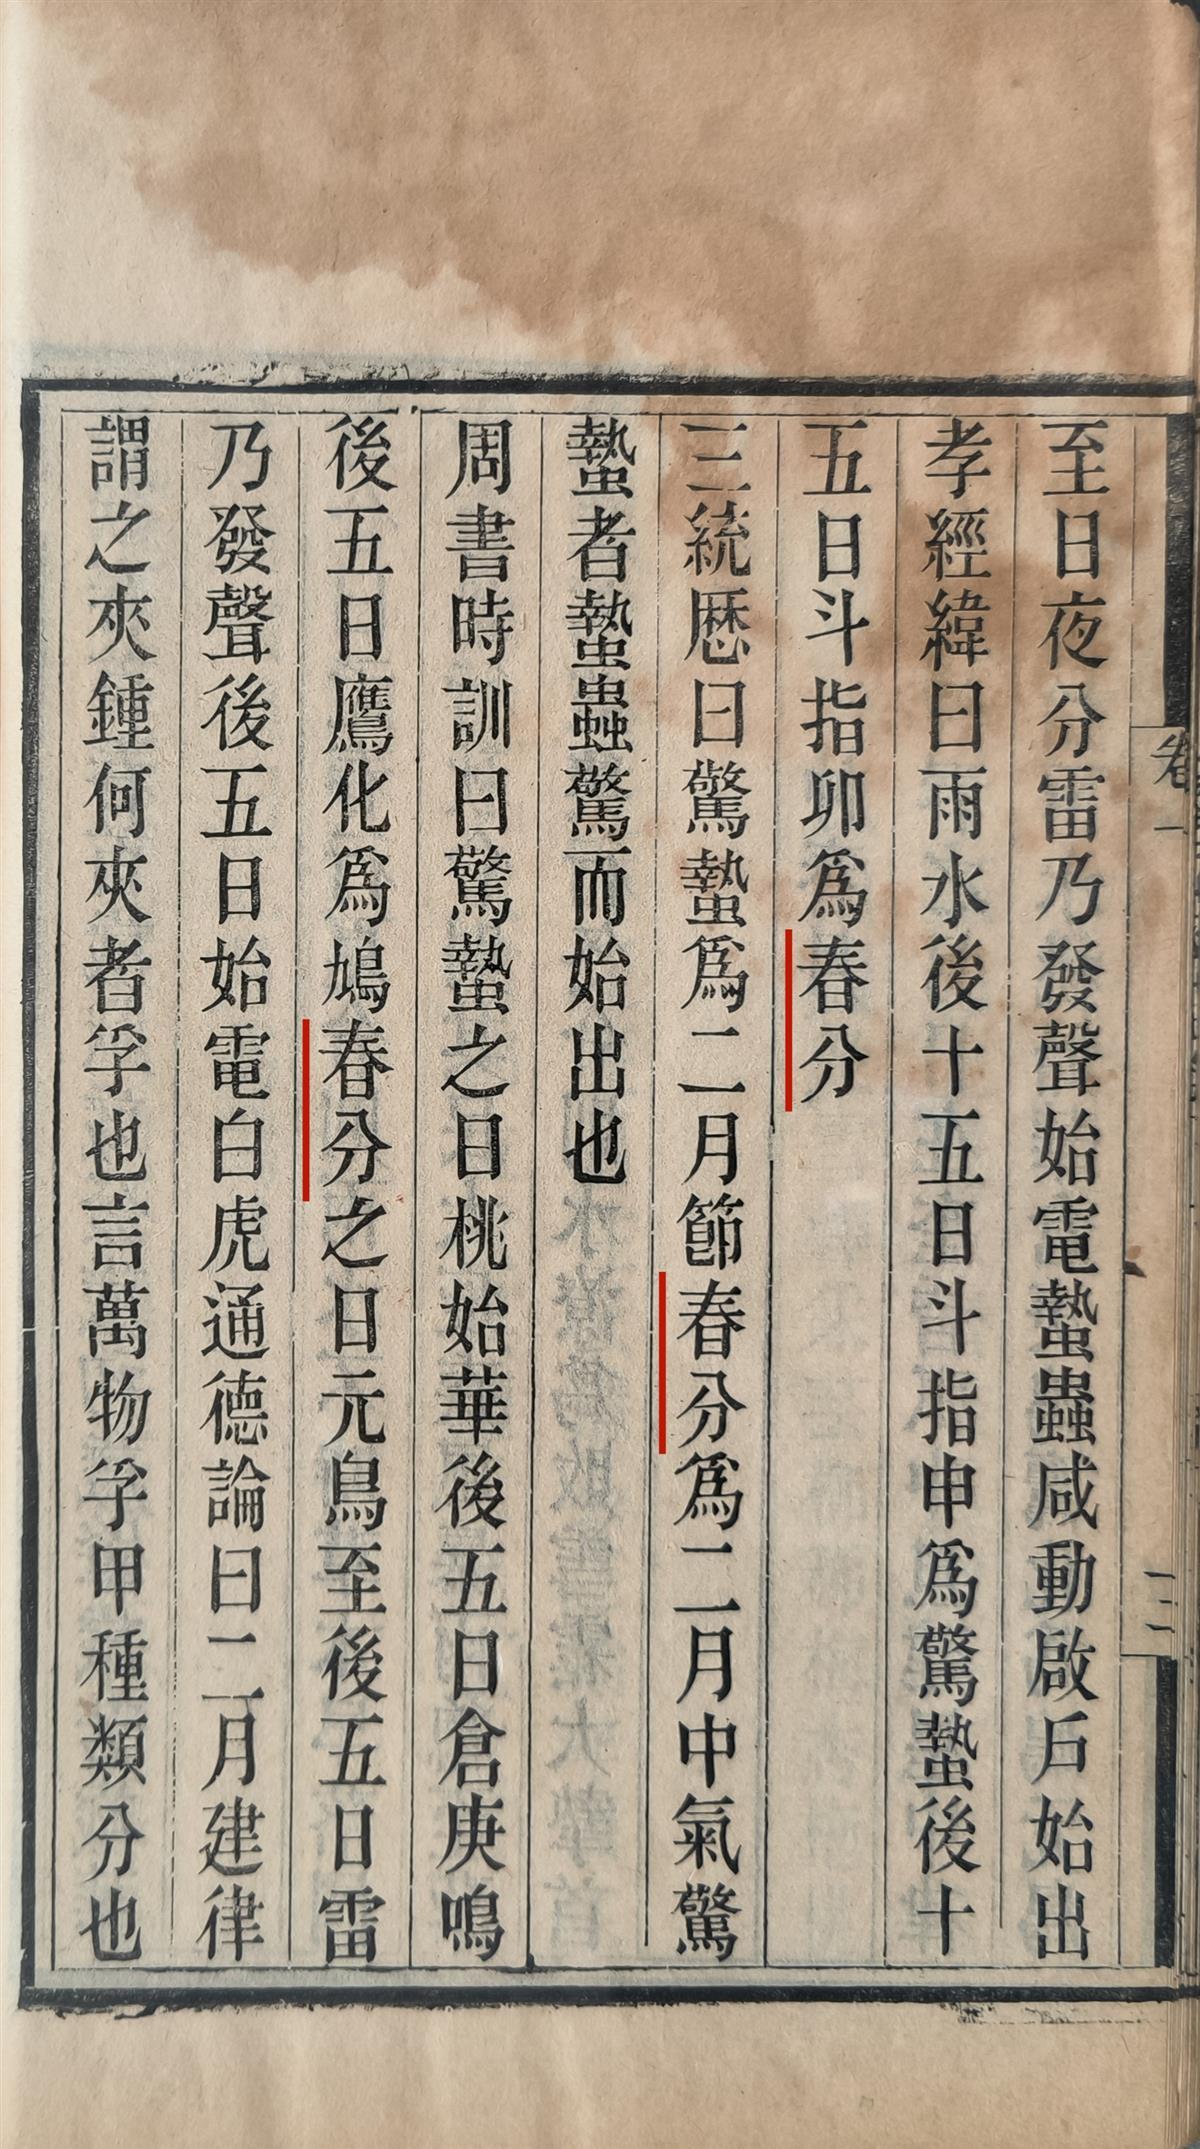 至日夜分雷乃發聲始電蟄蟲咸動啟戶始出
孝經緯曰雨水後十五日斗指申爲驚蟄後十
五日斗指卯爲春分
三統厯曰驚蟄爲二月節春分爲二月中氣驚
蟄者蟄蟲驚而始出也
周書時訓曰驚蟄之日桃始華後五日倉庚鳴
後五日鷹化爲鳩春分之日元鳥至後五日雷
乃發聲後五日始電白虎通德論曰二月建律
謂之夾鍾何夾者孚也言萬物孚甲種類分也
卷一